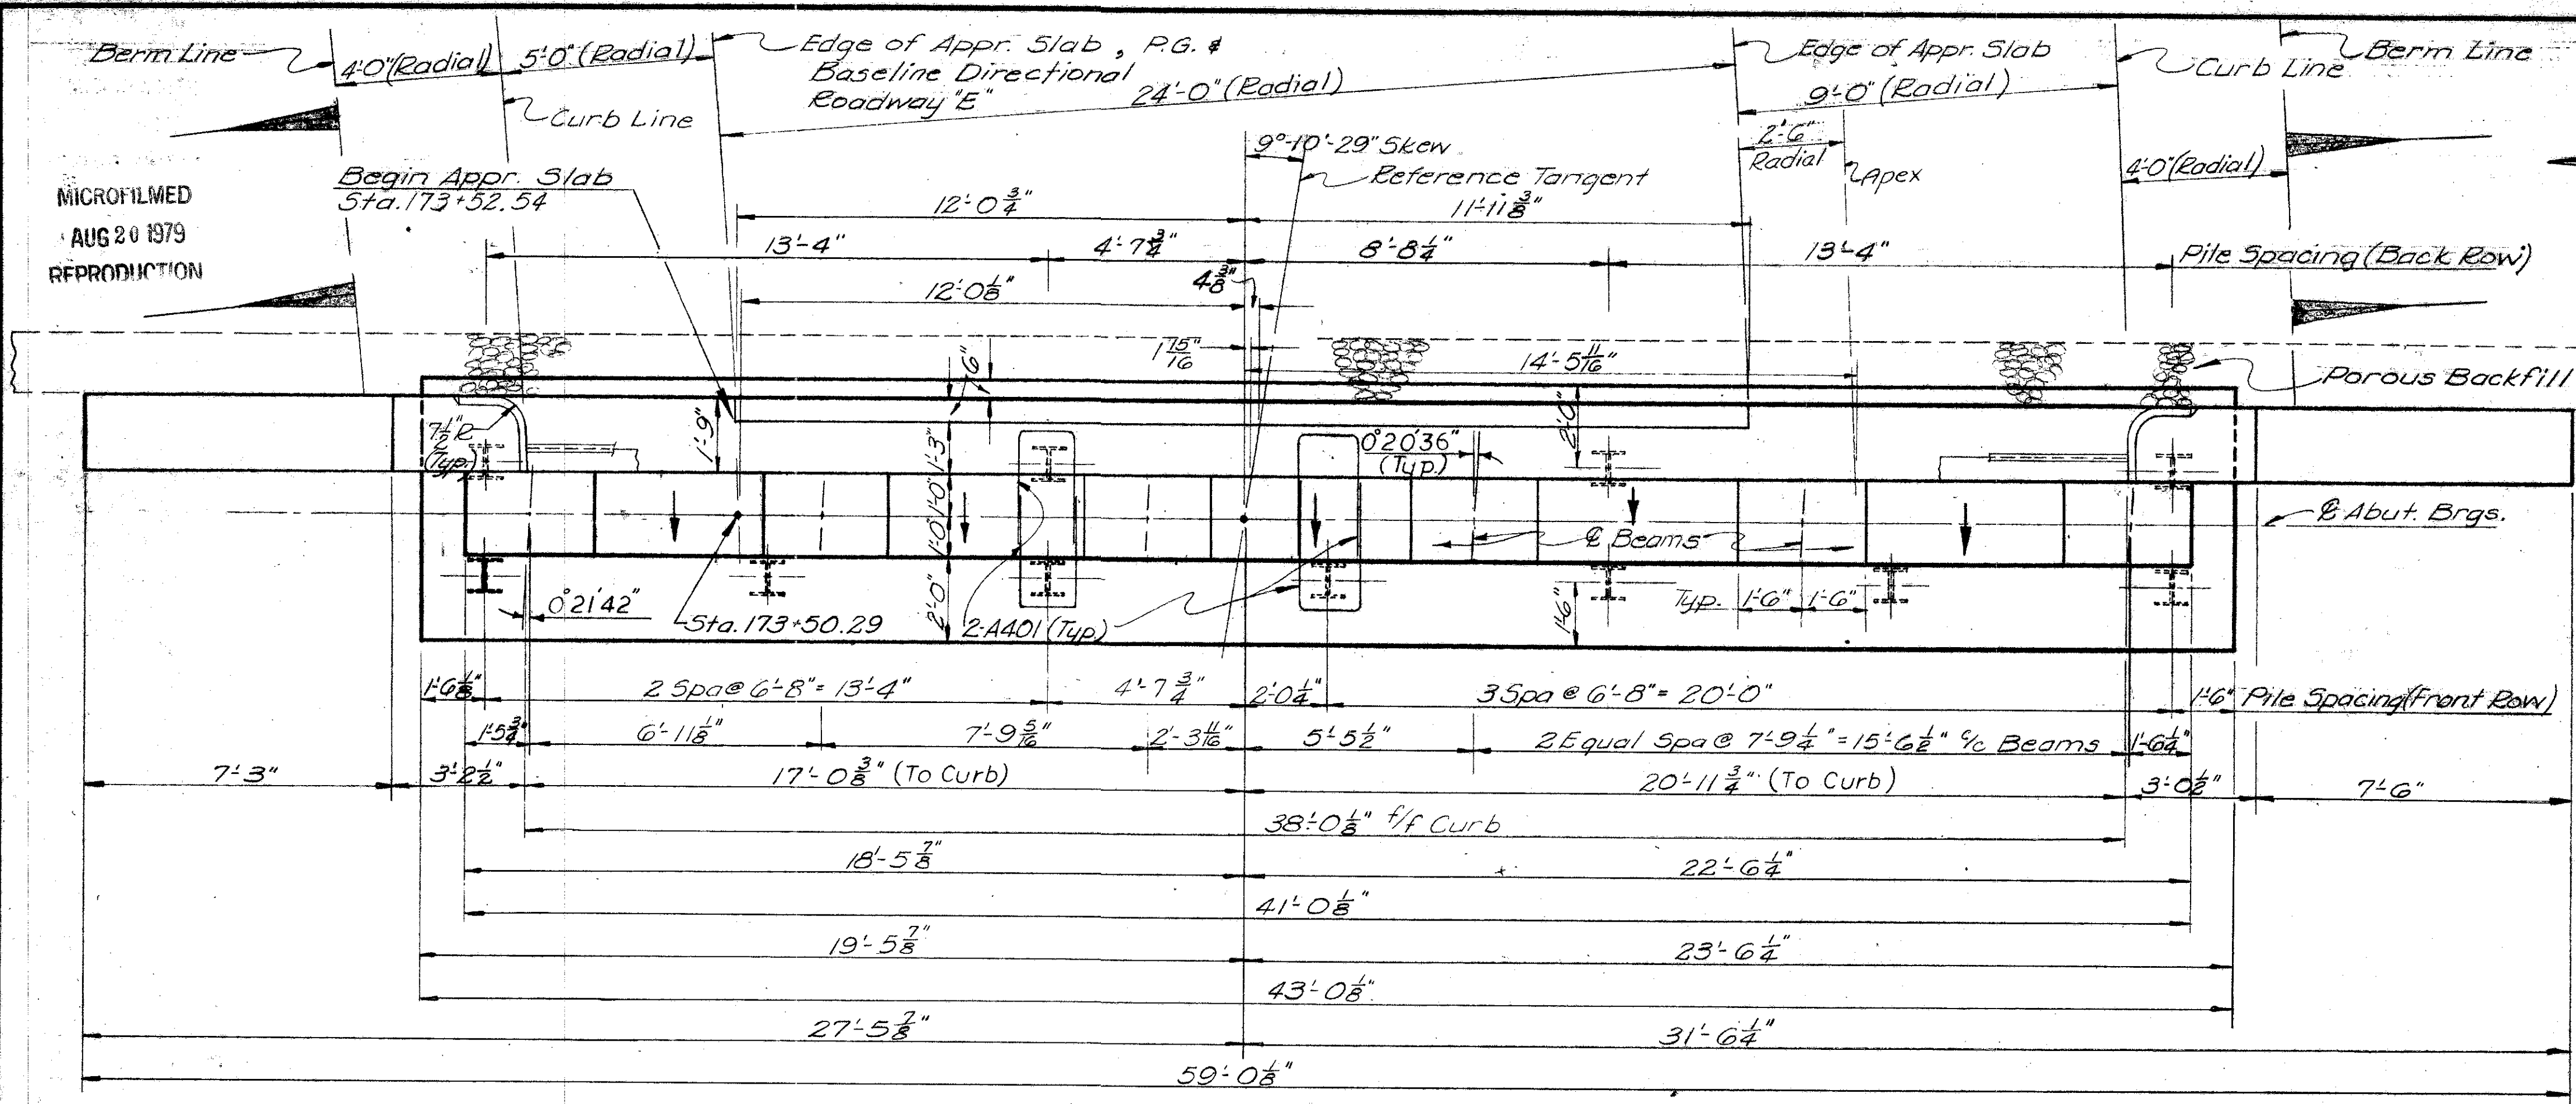 Berm Line
4'-0" (Radial)
5'-0" (Radial)
Edge of Appr. Slab, P.G. &
Baseline Directional
Roadway "E"
24'-0" (Radial)
Edge of Appr. Slab
9'-0" (Radial)
Curb Line
Berm Line
Curb Line
2'-6"
Radial
Apex
4'-0" (Radial)
9°-10'-29" Skew
Reference Tangent
MICROFILMED
AUG 20 1979
REPRODUCTION
Begin Appr. Slab
Sta. 173+52.54
12'-0 3/4"
11'-11 3/8"
13'-4"
4'-7 3/4"
8'-8 1/4"
13'-4"
Pile Spacing (Back Row)
12'-0 1/8"
4 3/8"
1 15/16"
14'-5 11/16"
6"
Porous Backfill
7 1/2" R
(Typ.)
1'-9"
1'-3"
2'-0"
0°20'36"
(Typ.)
1'-0"
1'-0"
℄ Abut. Brgs.
℄ Beams
0°21'42"
Sta. 173+50.29
2'-0"
2-A401 (Typ.)
1'-6"
Typ. 1'-6" 1'-6"
1'-6 1/8"
2 Spa @ 6'-8" = 13'-4"
4'-7 3/4"
2'-0 1/4"
3 Spa @ 6'-8" = 20'-0"
1'-6"
Pile Spacing (Front Row)
1'-5 3/4"
6'-11 1/8"
7'-9 5/16"
2'-3 11/16"
5'-5 1/2"
2 Equal Spa @ 7'-9 1/4" = 15'-6 1/2" c/c Beams
1'-6 1/4"
7'-3"
3'-2 1/2"
17'-0 3/8" (To Curb)
20'-11 3/4" (To Curb)
3'-0 1/2"
7'-6"
38'-0 1/8" f/f Curb
18'-5 7/8"
22'-6 1/4"
41'-0 1/8"
19'-5 7/8"
23'-6 1/4"
43'-0 1/8"
27'-5 7/8"
31'-6 1/4"
59'-0 1/8"